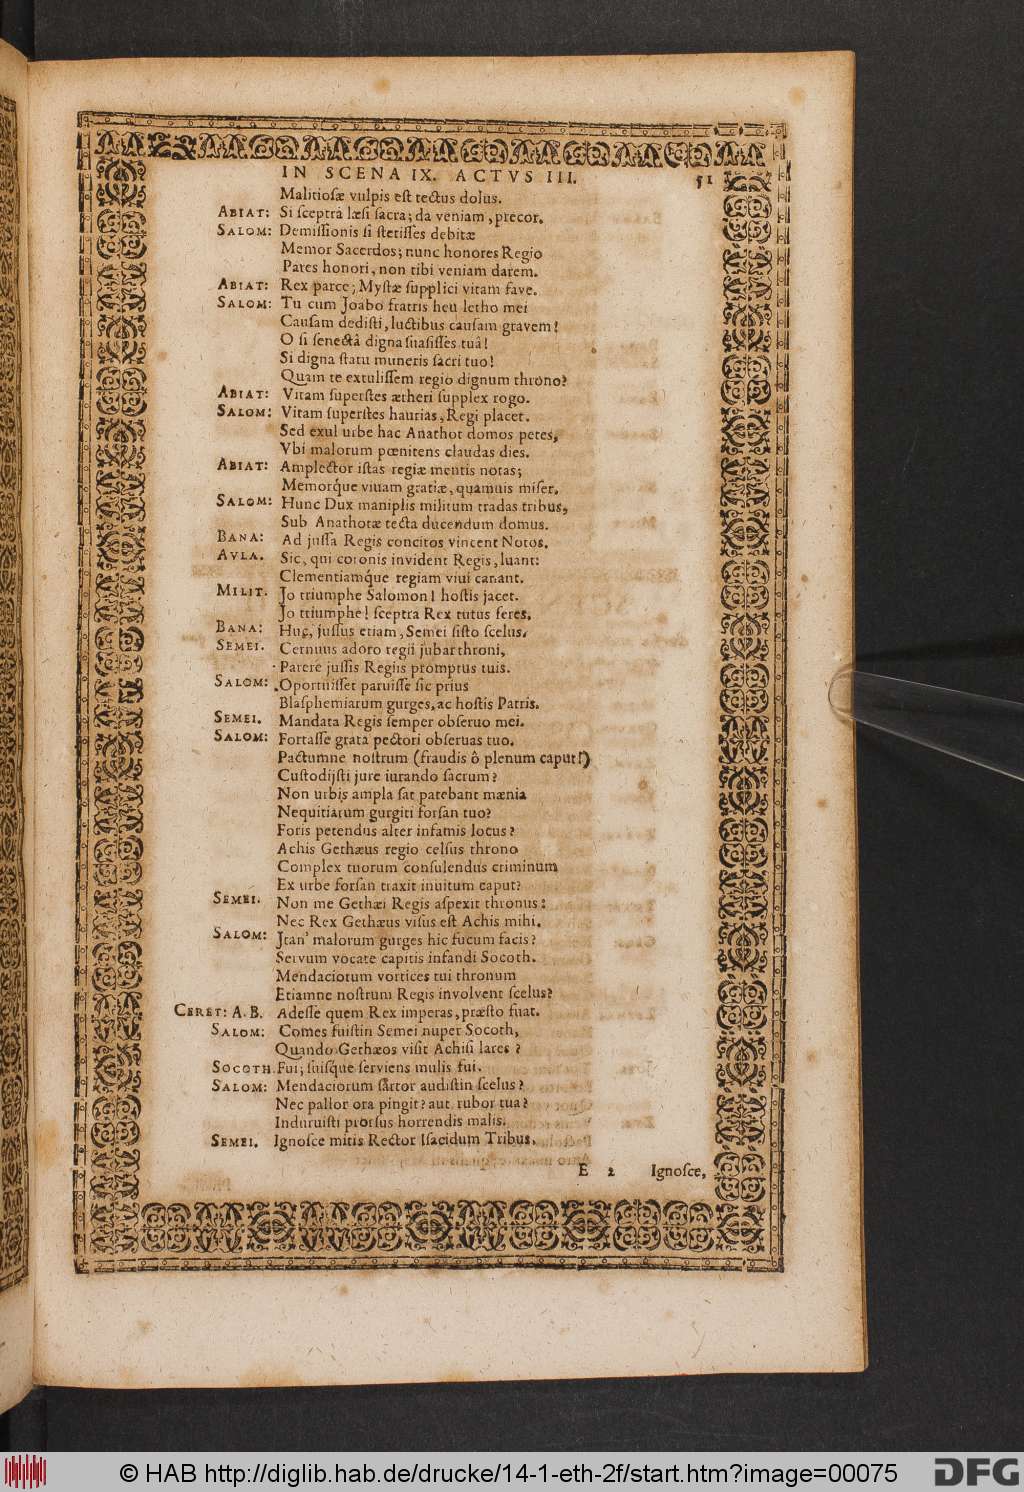 IN SCENA IX. ACTVS III. 51
Malitiosæ vulpis est tectus dolus.
ABIAT: Si sceptra læsi sacra; da veniam, precor.
SALOM: Demissionis si stetisses debitæ
Memor Sacerdos; nunc honores Regio
Pares honori, non tibi veniam darem.
ABIAT: Rex parce; Mystæ supplici vitam fave.
SALOM: Tu cum Joabo fratris heu letho mei
Causam dedisti, luctibus causam gravem!
O si senectâ digna suasisses tuâ!
Si digna statu muneris sacri tuo!
Quam te extulissem regio dignum throno?
ABIAT: Vitam superstes ætheri supplex rogo.
SALOM: Vitam superstes haurias, Regi placet.
Sed exul urbe hac Anathot domos petes,
Vbi malorum pœnitens claudas dies.
ABIAT: Amplector istas regiæ mentis notas;
Memorq́ue viuam gratiæ, quamuis miser.
SALOM: Hunc Dux maniplis militum tradas tribus,
Sub Anathotæ tecta ducendum domus.
BANA: Ad jussa Regis concitos vincent Notos.
AVLA. Sic, qui coronis invident Regis, luant:
Clementiamq́ue regiam viui canant.
MILIT. Jo triumphe Salomon! hostis jacet.
Jo triumphe! sceptra Rex tutus feres.
BANA: Huc, jussus etiam, Semei sisto scelus.
SEMEI. Cernuus adoro regii jubar throni,
Parere jussis Regiis promptus tuis.
SALOM: Oportuisset paruisse sic prius
Blasphemiarum gurges, ac hostis Patris.
SEMEI. Mandata Regis semper obseruo mei.
SALOM: Fortasse grata pectori obseruas tuo.
Pactumne nostrum (fraudis ô plenum caput!)
Custodijsti jure iurando sacrum?
Non urbis ampla sat patebant mænia
Nequitiarum gurgiti forsan tuo?
Foris petendus alter infamis locus?
Achis Gethæus regio celsus throno
Complex tuorum consulendus criminum
Ex urbe forsan traxit inuitum caput?
SEMEI. Non me Gethæi Regis aspexit thronus:
Nec Rex Gethæus visus est Achis mihi.
SALOM: Jtan' malorum gurges hic fucum facis?
Servum vocate capitis infandi Socoth.
Mendaciorum vortices tui thronum
Etiamne nostrum Regis involvent scelus?
CERET: A. B. Adesse quem Rex imperas, præsto fuat.
SALOM: Comes fuistin Semei nuper Socoth,
Quando Gethæos visit Achisi lares?
SOCOTH. Fui; suisque serviens mulis fui.
SALOM: Mendaciorum sartor audistin scelus?
Nec pallor ora pingit? aut rubor tua?
Induruisti prorsus horrendis malis.
SEMEI. Ignosce mitis Rector Isacidum Tribus.
E 2 Ignosce,
© HAB http://diglib.hab.de/drucke/14-1-eth-2f/start.htm?image=00075
DFG